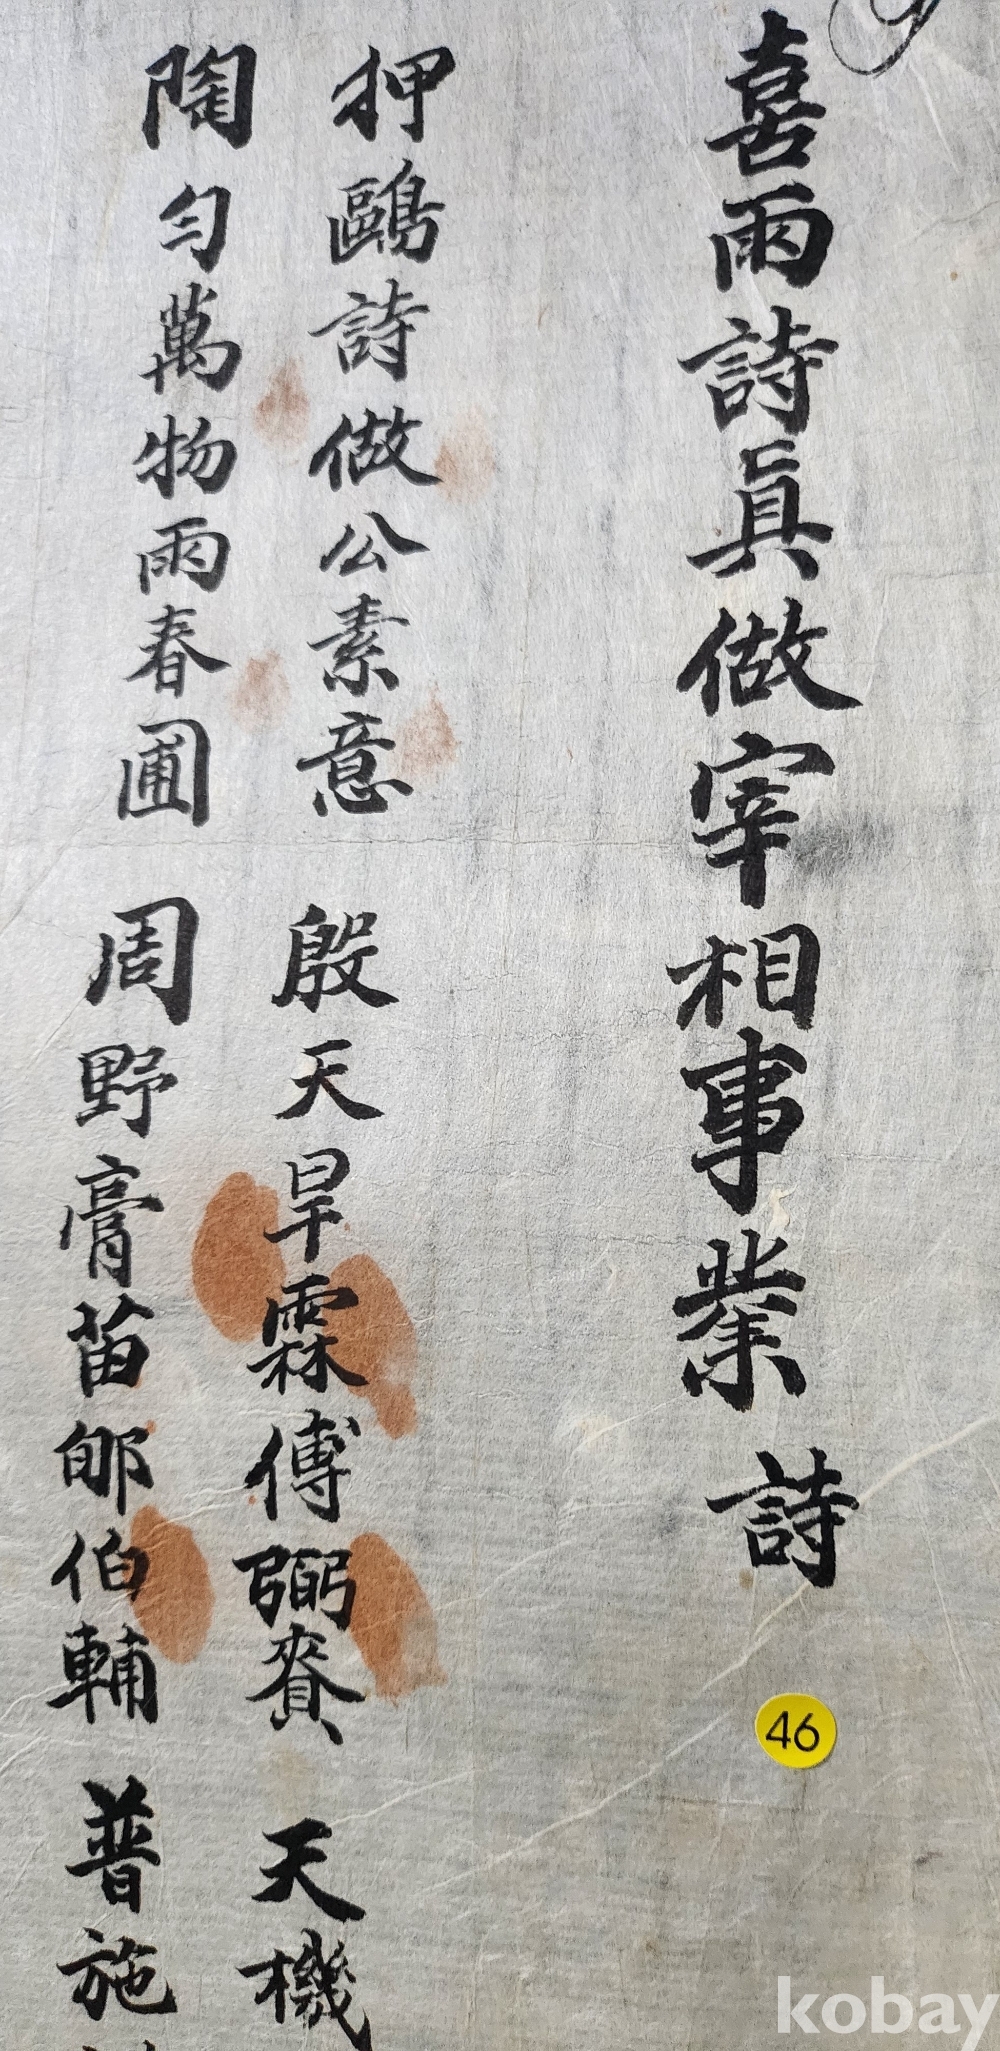 喜雨詩眞做宰相事業 詩
押鷗詩做公素意 殷天旱霖傅弼賚 天機
陶勻萬物雨春圃 周野膏苗郇伯輔 普施
46
kobay